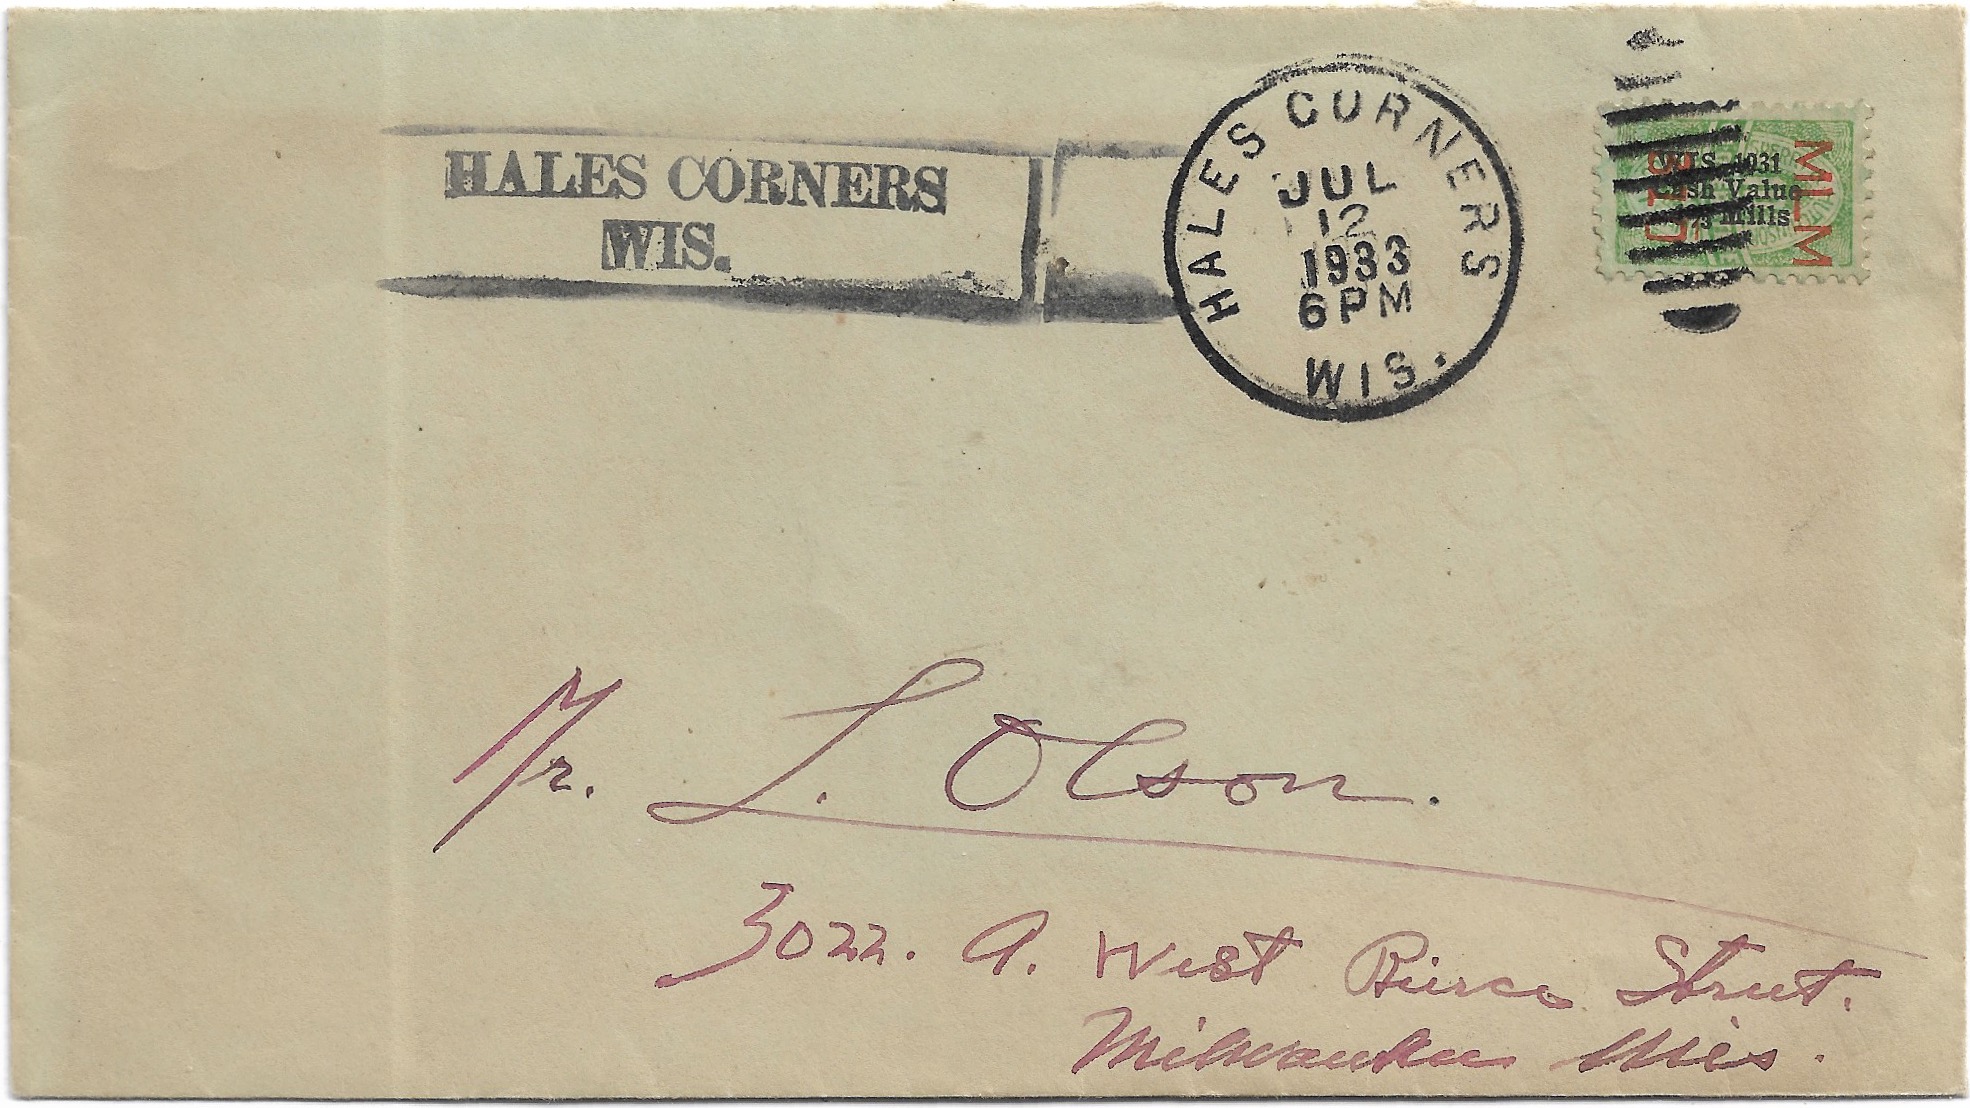 HALES CORNERS
WIS.
HALES CORNERS
JUL
12
1933
6 PM
WIS.
WIS. 1931
Cash Value
Mills
MLM
Mr. L. Olson.
3022. A. West Pierce Street.
Milwaukee Wis.